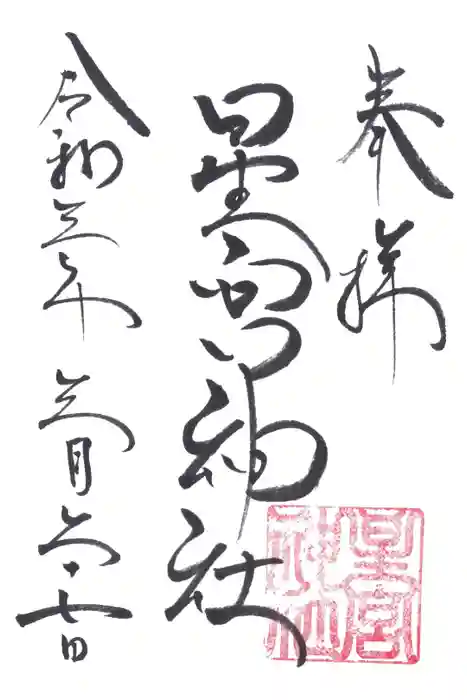 奉拝
星宮神社
令和三年三月二十七日
星宮
神社